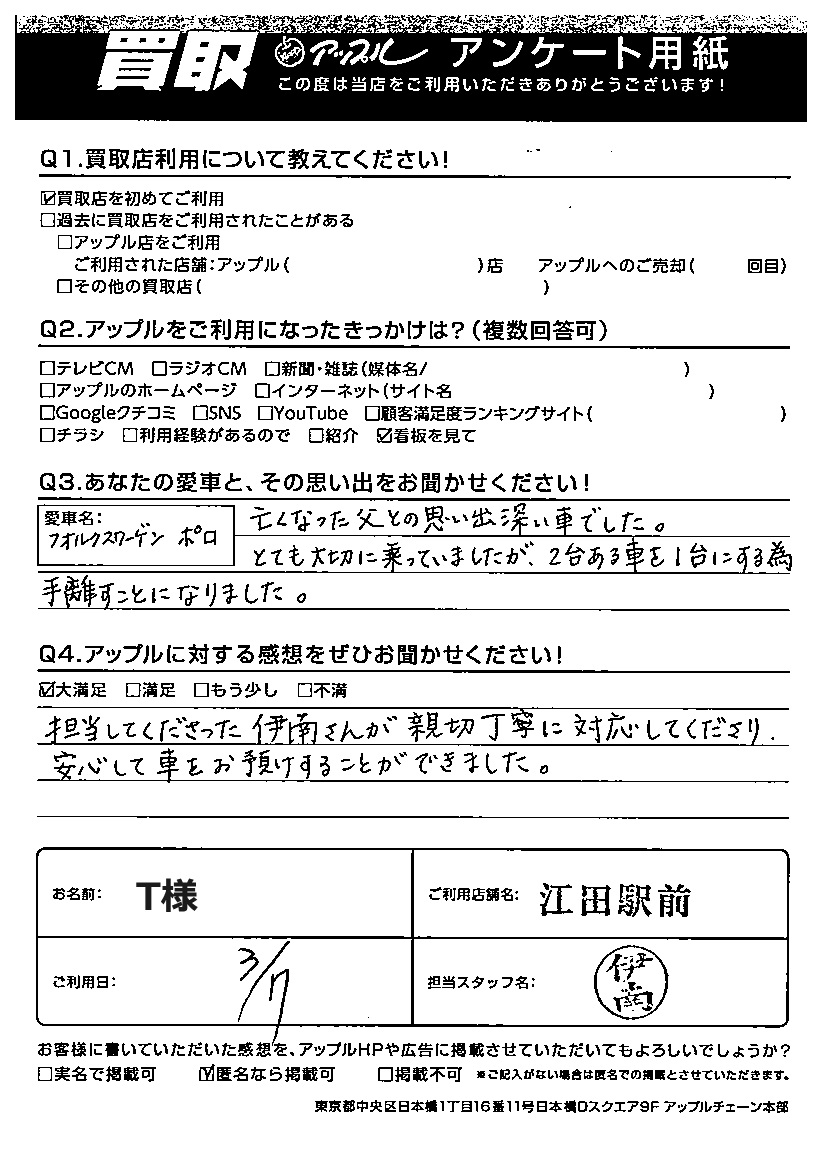 買取 アップル アンケート用紙
この度は当店をご利用いただきありがとうございます!
Q1.買取店利用について教えてください!
☑買取店を初めてご利用
□過去に買取店をご利用されたことがある
□アップル店をご利用
ご利用された店舗:アップル( )店 アップルへのご売却( 回目)
□その他の買取店( )
Q2.アップルをご利用になったきっかけは?(複数回答可)
□テレビCM □ラジオCM □新聞・雑誌(媒体名/ )
□アップルのホームページ □インターネット(サイト名 )
□Googleクチコミ □SNS □YouTube □顧客満足度ランキングサイト( )
□チラシ □利用経験があるので □紹介 ☑看板を見て
Q3.あなたの愛車と、その思い出をお聞かせください!
愛車名:
フォルクスワーゲン ポロ
亡くなった父との思い出深い車でした。
とても大切に乗っていましたが、2台ある車を1台にする為
手離すことになりました。
Q4.アップルに対する感想をぜひお聞かせください!
☑大満足 □満足 □もう少し □不満
担当してくださった伊南さんが親切丁寧に対応してくださり、
安心して車をお預けすることができました。
お名前: T様 ご利用店舗名: 江田駅前
ご利用日: 3/7 担当スタッフ名: 伊南
お客様に書いていただいた感想を、アップルHPや広告に掲載させていただいてもよろしいでしょうか?
□実名で掲載可 ☑匿名なら掲載可 □掲載不可 ※ご記入がない場合は匿名での掲載とさせていただきます。
東京都中央区日本橋1丁目16番11号日本橋Dスクエア9F アップルチェーン本部